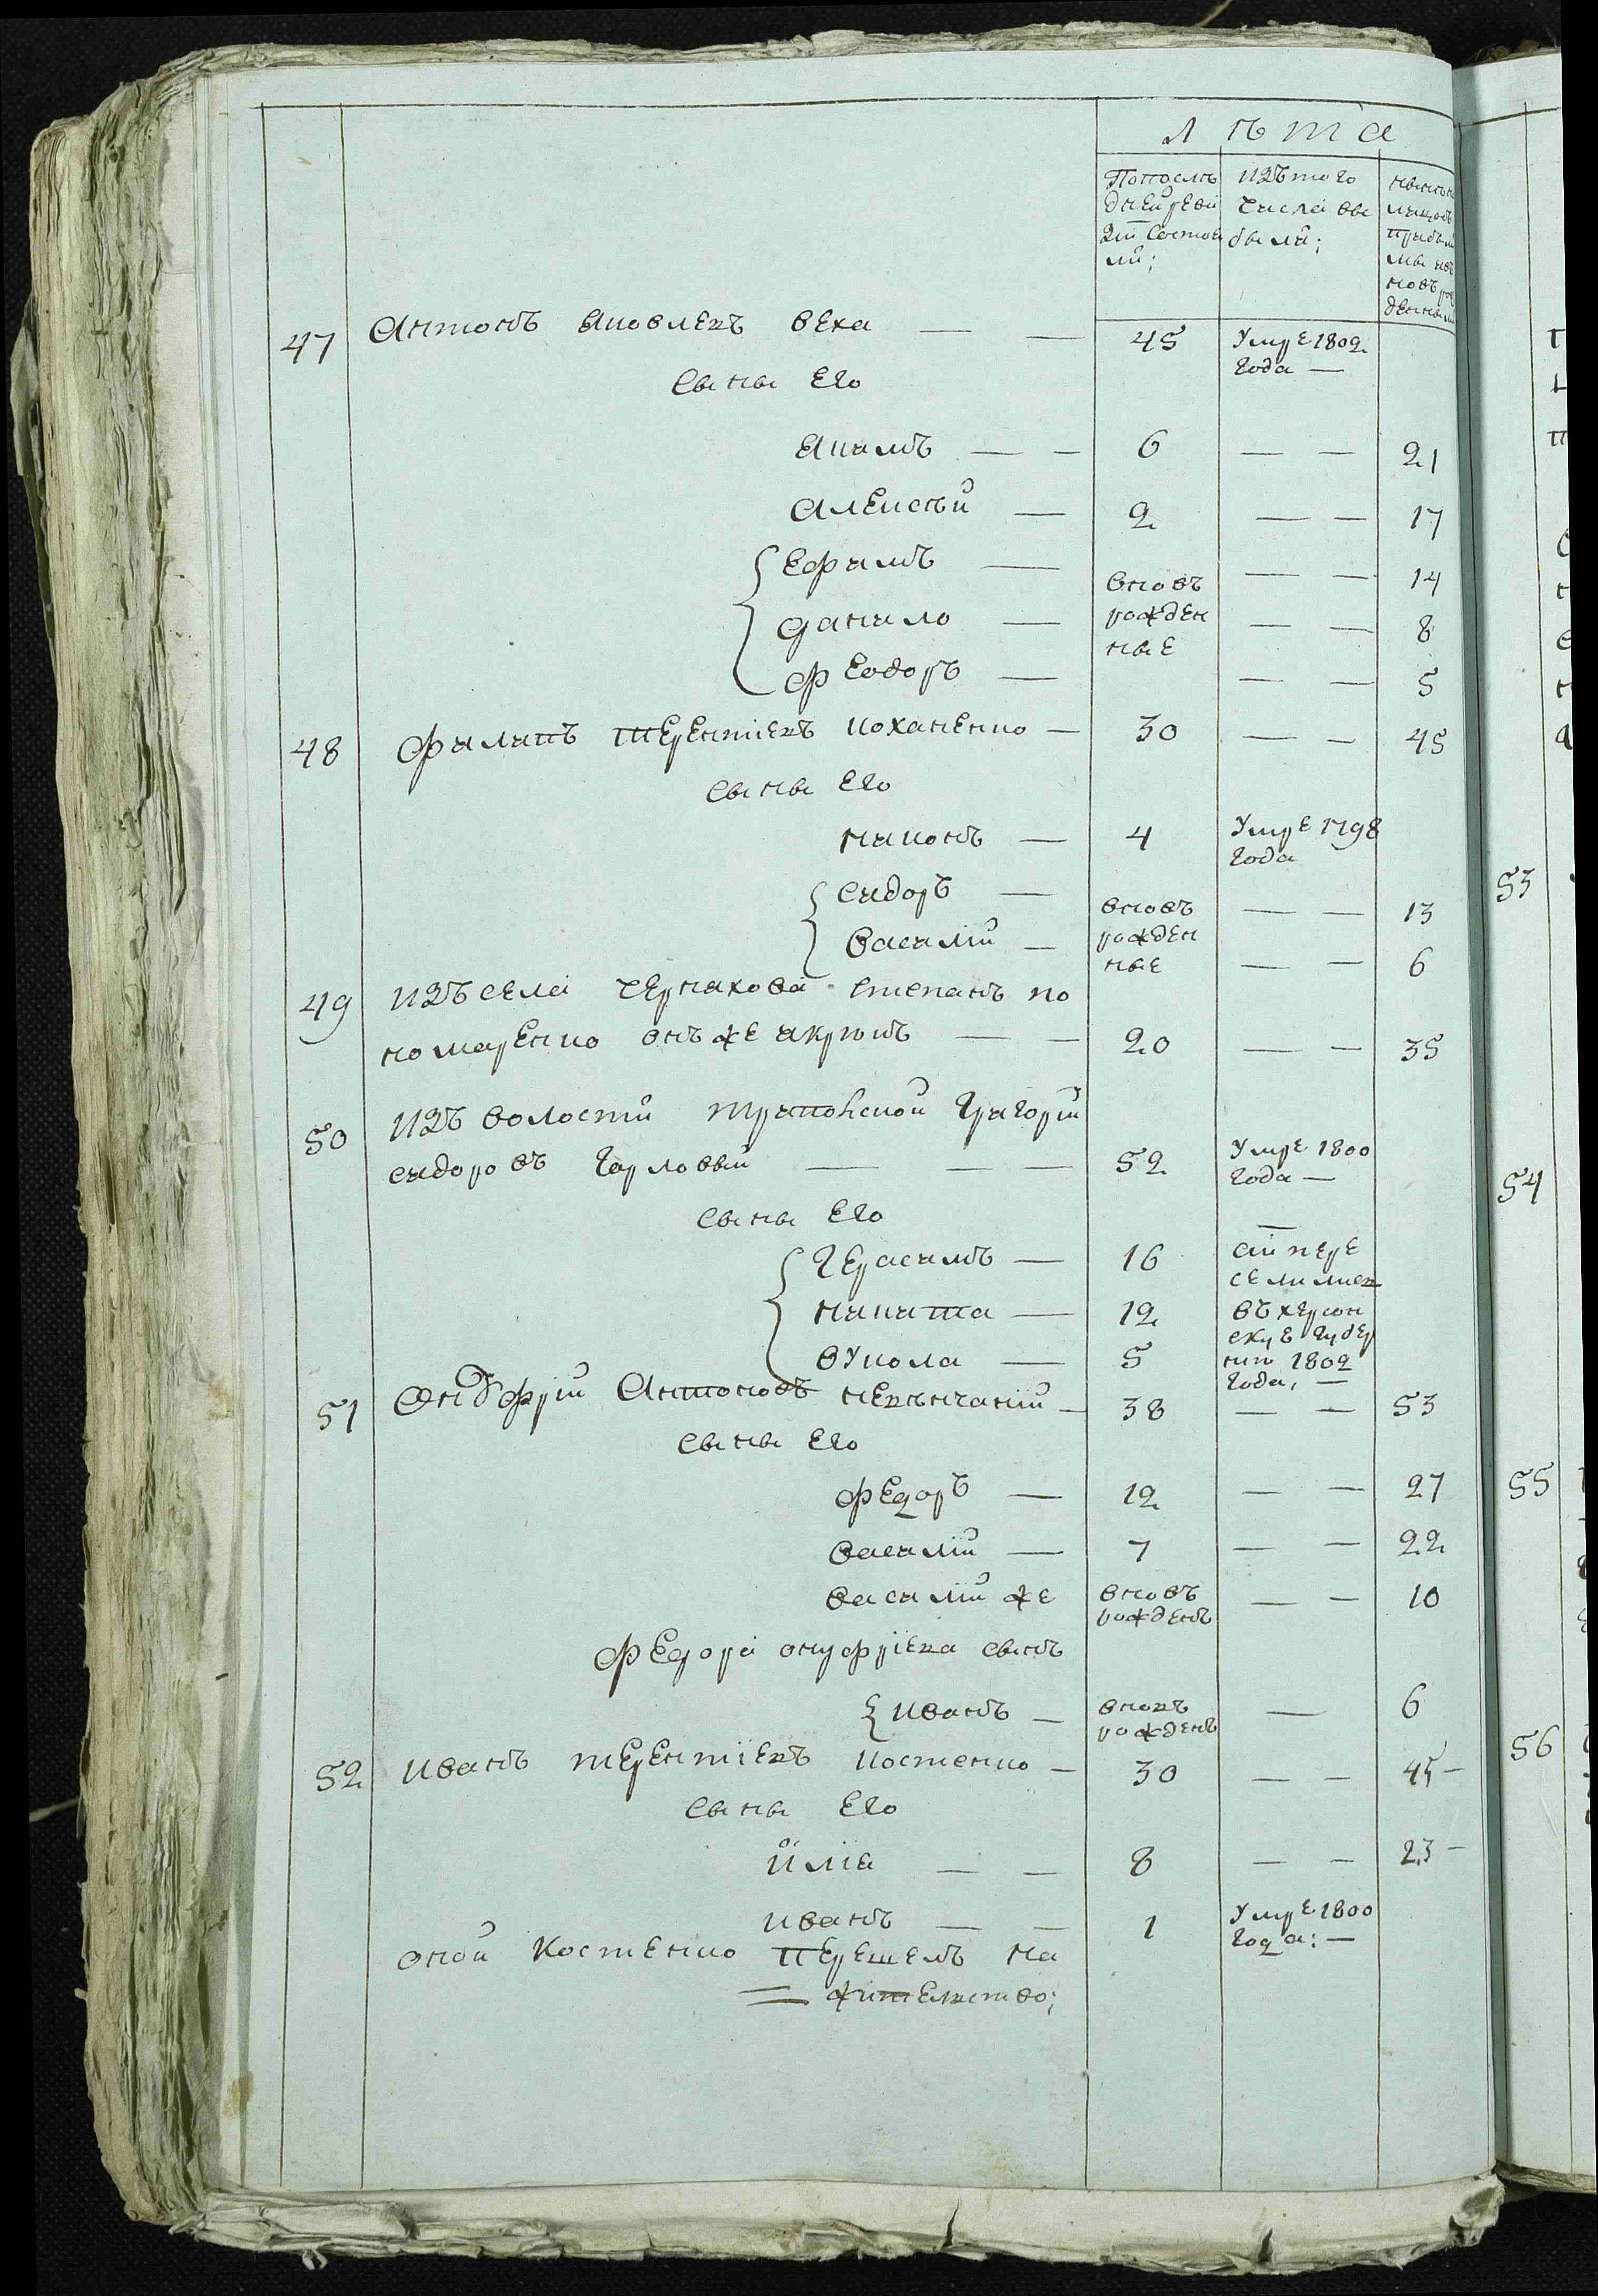 лѣта
Попослѣ
дней реви
зіи состоя
ли;
изъ того
числа вы
были;
нынѣ
налицо съ
прибы
лыми
новъ рож
денными
47 Антонъ Яковлевъ Веха — — 45 Умре 1802
года —
Сыны Его
Якимъ — — 6 — — 21
Алексѣй — 2 — — 17
Ефимъ — — — 14
вновь
Данило — рожден — — 8
ные
Феодоръ — — — 5
48 Филипъ Терентіевъ Коханенко — 30 — — 45
сыны Его
Никонъ — 4 Умре 1798
года
Сидоръ — вновь — — 13
Василій — рожден
ные — — 6
49 изъ села Черняхова Степанъ по
номаренко онъ же — — 20 — — 35
50 изъ волости Трипольской Григорій
Сидоровъ Горловый — — — 52 Умре 1800
года —
Сыны Его
Герасимъ — 16 сіи пере
селились
Никита — 12 въ херсон
скую губер
Вукола — 5 нию 1802
года, —
51 Онуфрій Антоновъ — 38 — — 53
сыны Его
Федоръ — 12 — — 27
Василій — 7 — — 22
Василій же вновь — — 10
рожденъ
Федора онуфріева сынъ
Иванъ — вновь — 6
рожденъ
52 Иванъ Терентіевъ Костенко — 30 — — 45 —
сыны Его
Илія — — 8 — — 23 —
Иванъ — — 1 Умре 1800
года: —
оной Костенко перешелъ на
жителство;
53
54
55
56